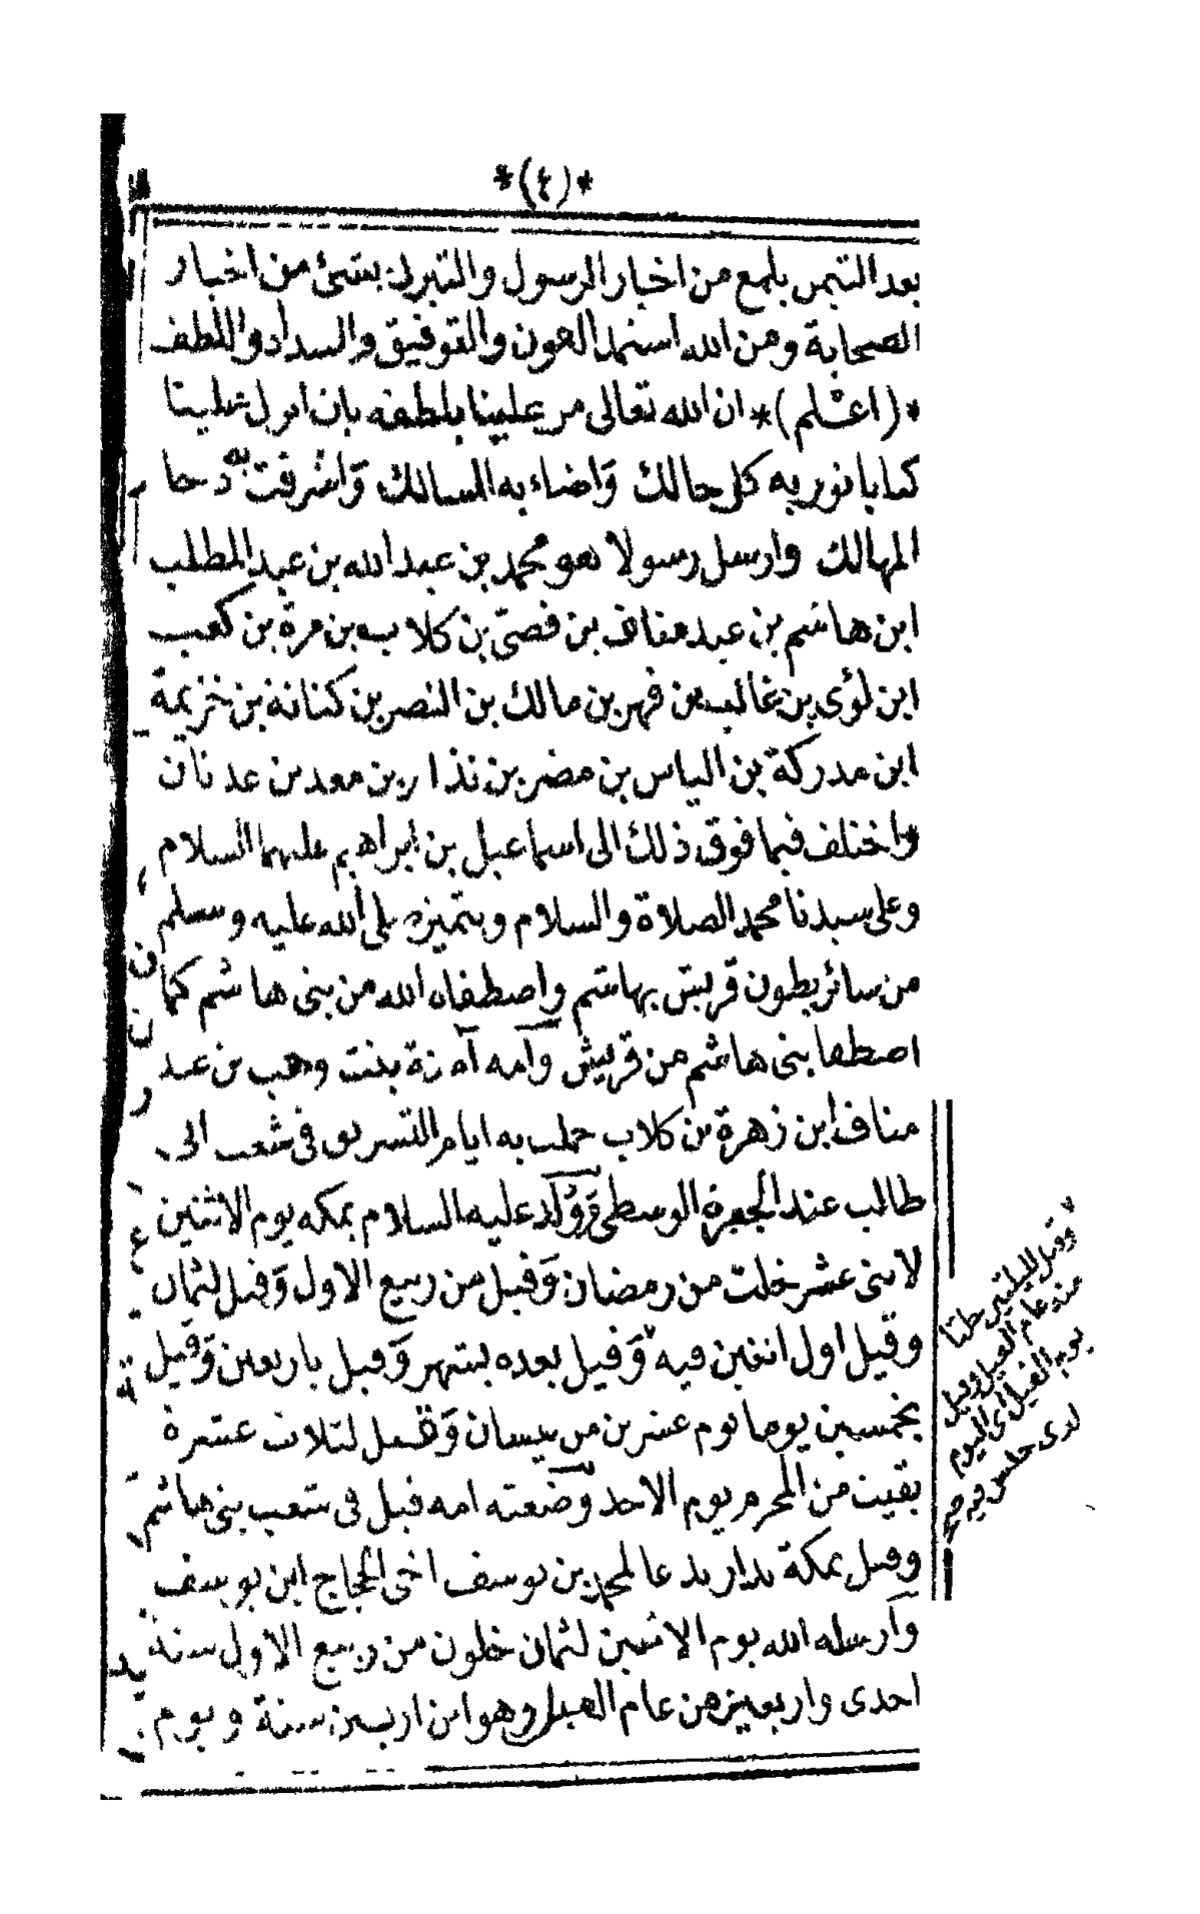 *(٤)*
بعد التيمن بلمع من اخبار الرسول والتبرك بشئ من اخبار
الصحابة ومن الله استمد العون والتوفيق والسداد واللطف
*(اعلم)* ان الله تعالى من علينا بلطفه بان انزل علينا
كتابا نور به كل حالك وَاضاء به المسالك وَاشرقت به دجا
المهالك وارسل رسولا هو محمد بن عبد الله بن عبد المطلب
ابن هاشم بن عبد مناف بن قصىّ بن كلاب بن مرة بن كعب
ابن لؤى بن غالب بن فهر بن مالك بن النضر بن كنانة بن خزيمة
ابن مدركة بن الياس بن مضر بن نذار بن معد بن عدنان
واختلف فيما فوق ذلك الى اسماعيل بن ابراهيم عليهما السلام
وعلى سيدنا محمد الصلاة والسلام وبتميزه صلى الله عليه وسلم
من سائر بطون قريش بهاشم واصطفاه الله من بنى هاشم كما
اصطفا بنى هاشم من قريش وآمه آمنة بنت وهب بن عبد
مناف ابن زهرة بن كلاب حملت به ايام التشريق فى شعب ابى
طالب عند الجمرة الوسطى وَوُلد عليه السلام بمكه يوم الاثنين
لاثنى عشر خلت من رمضان وَقيل من ربيع الاول وَقيل لثمان
وقيل اول اثنين فيه وَقيل بعده بشهر وَقيل باربعين وَقيل
بخمسين يوما يوم عشرين من نيسان وَقيل لثلاث عشرة
بقيت من المحرم يوم الاحد وضعته امه قيل فى شعب بنى هاشم
وقيل بمكة بدار تدعا لمحمد بن يوسف اخى الحجاج ابن يوسف
وَارسله الله يوم الاثنين لثمان خلون من ربيع الاول سنة
احدى واربعين من عام الفيل وهو ابن اربعين سنة ويوم
٧ وقيل لليلتين خلتا
منه عام الفيل وقيل
يوم الفيل اى اليوم
لدى حبس فيه